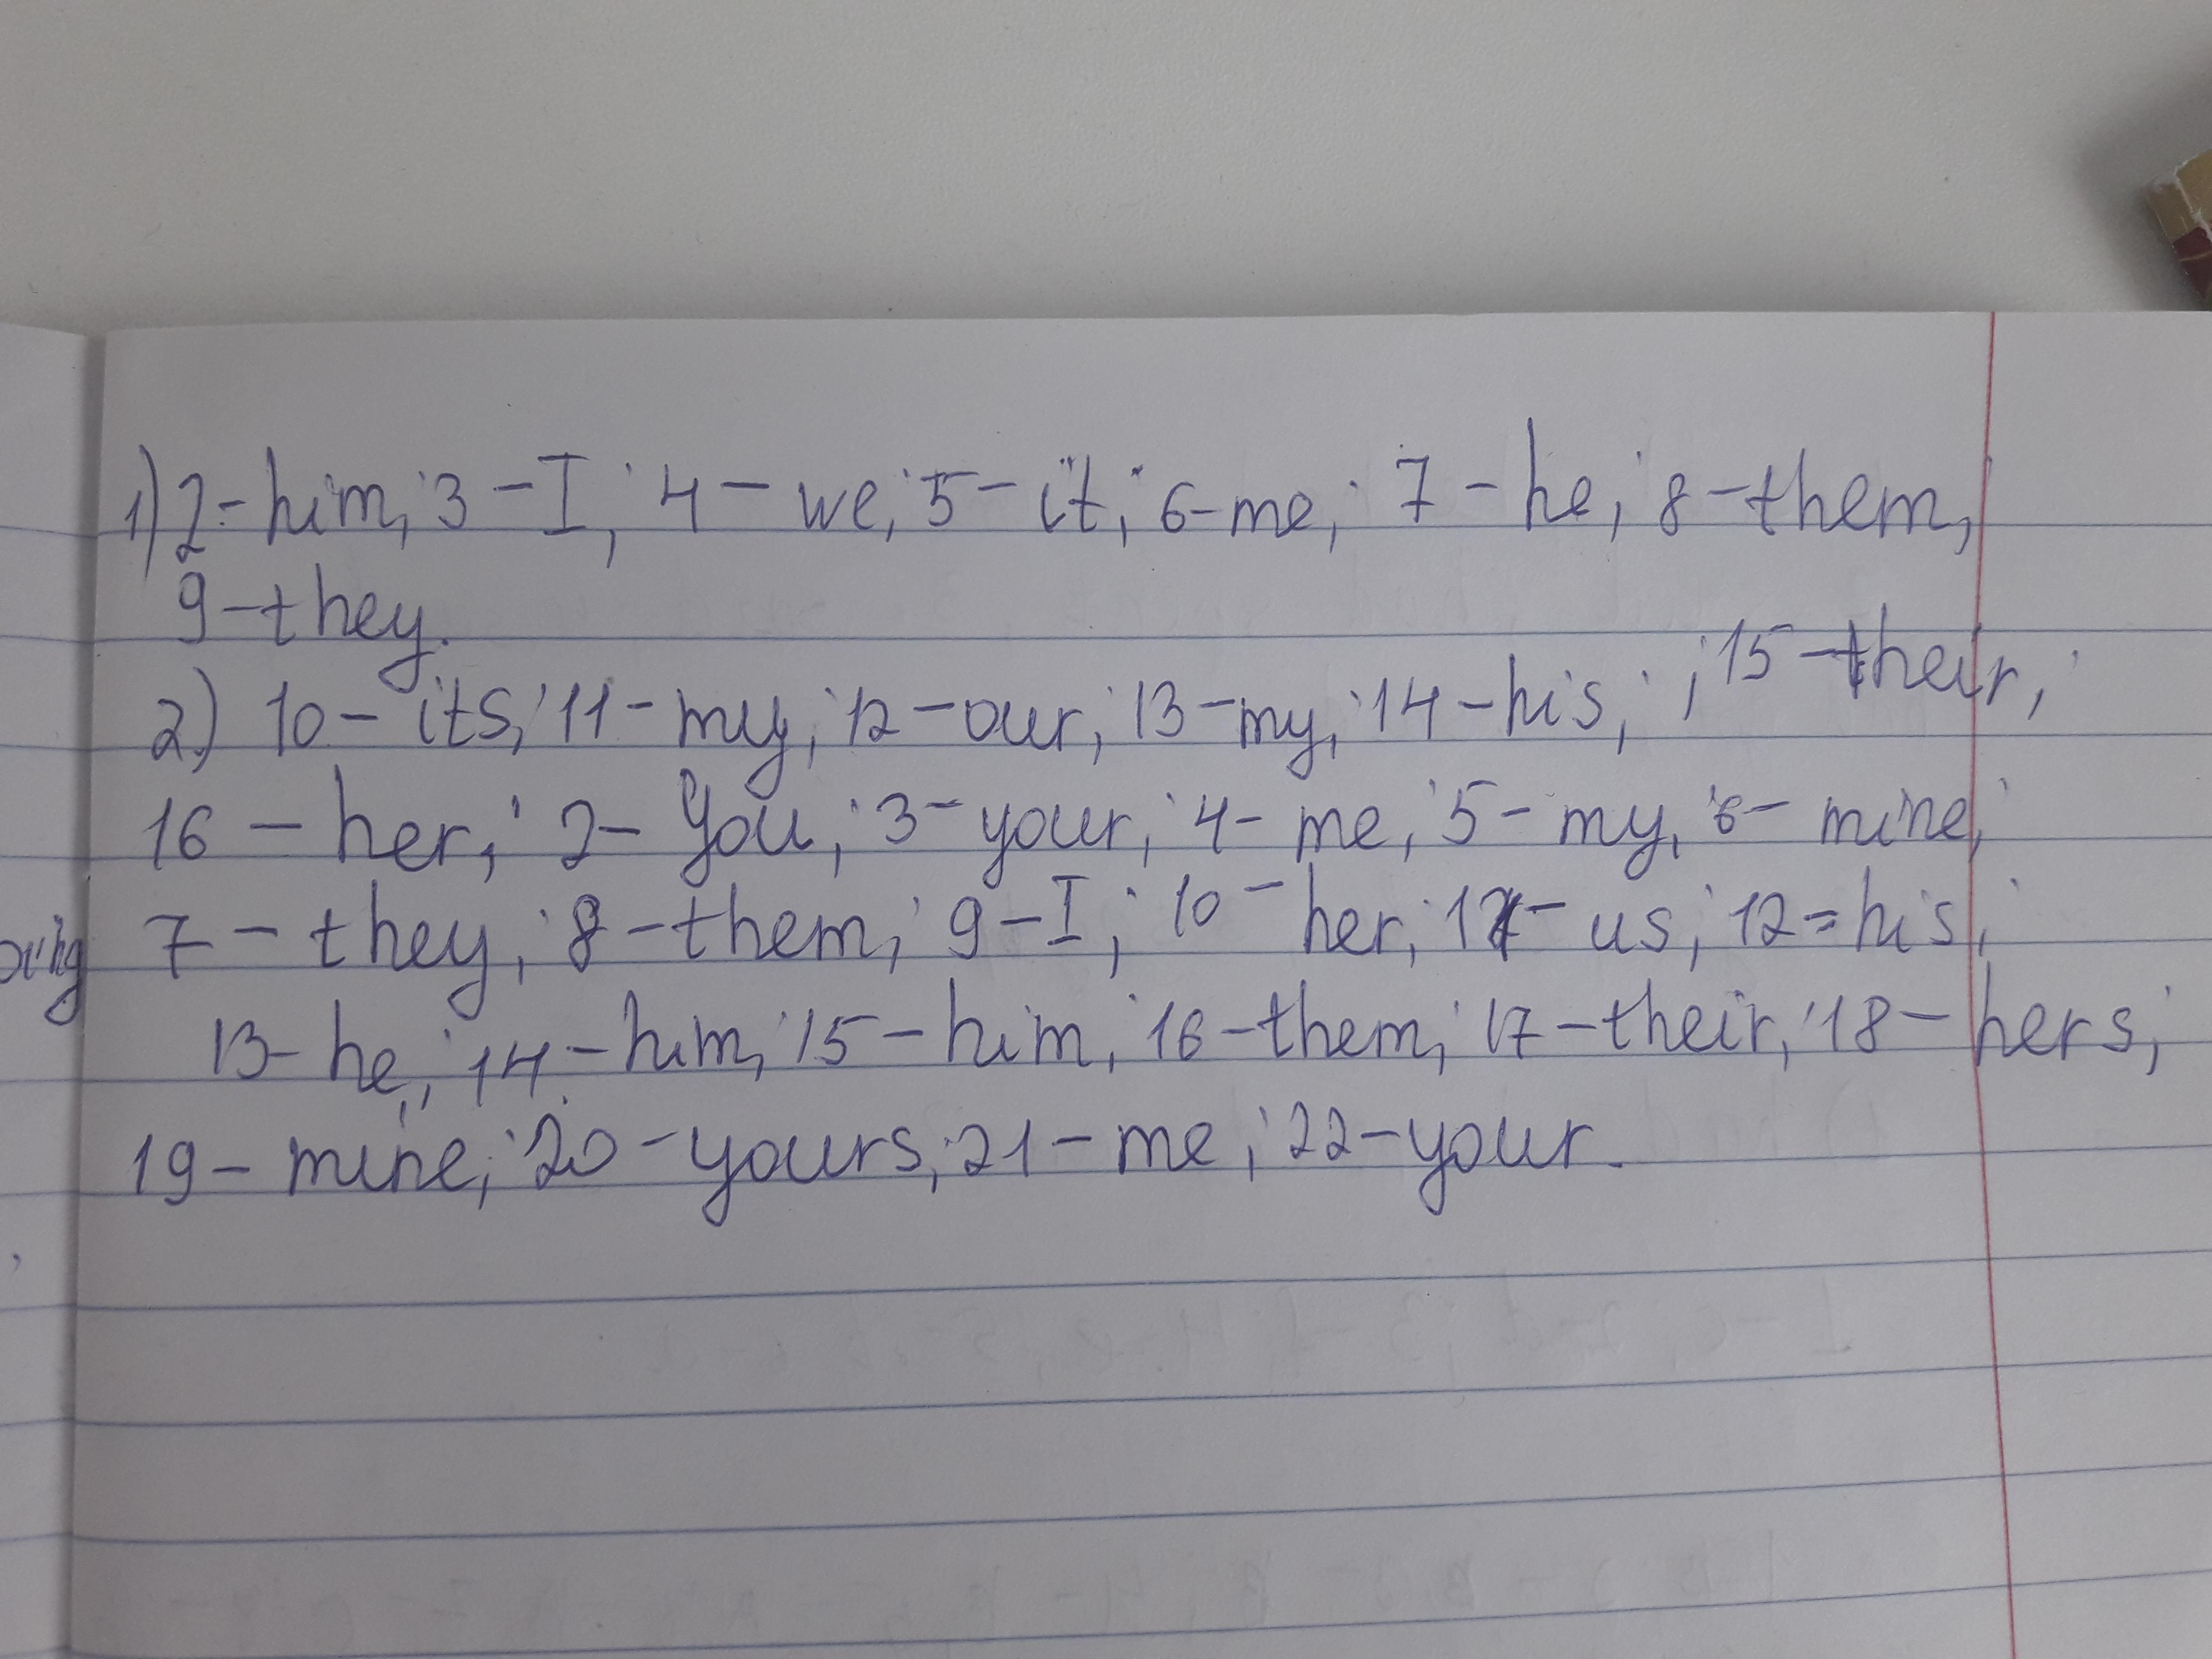 1) 2- him; 3 - I; 4 - we; 5 - it; 6-me; 7 - he; 8 - them;
9 - they.
2) 10 - its; 11 - my; 12 - our; 13 - my; 14 - his; ; 15 - their;
16 - her; 2 - you; 3 - your; 4 - me; 5 - my; 6 - mine;
7 - they; 8 - them; 9 - I; 10 - her; 11 - us; 12 = his;
13 - he; 14 - him; 15 - him; 16 - them; 17 - their; 18 - hers;
19 - mine; 20 - yours; 21 - me; 22 - your.